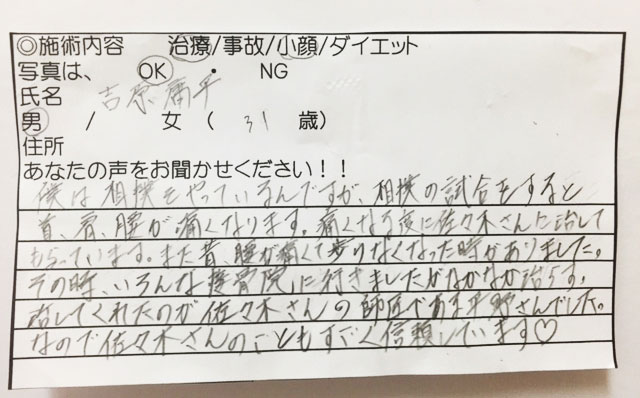 ◎施術内容　治療/事故/小顔/ダイエット
写真は、　OK　・　NG
氏名　吉原 庸平
男　/　女　(　31　歳)
住所
あなたの声をお聞かせください！！
僕は相撲をやっているんですが、相撲の試合をすると
首、肩、腰が痛くなります。痛くなる度に佐々木さんに治して
もらっています。また昔、腰が痛くて歩けなくなった時がありました。
その時、いろんな接骨院に行きましたがなかなか治らず、
治してくれたのが佐々木さんの師匠である平野さんでした。
なので佐々木さんのこともすごく信頼しています♡